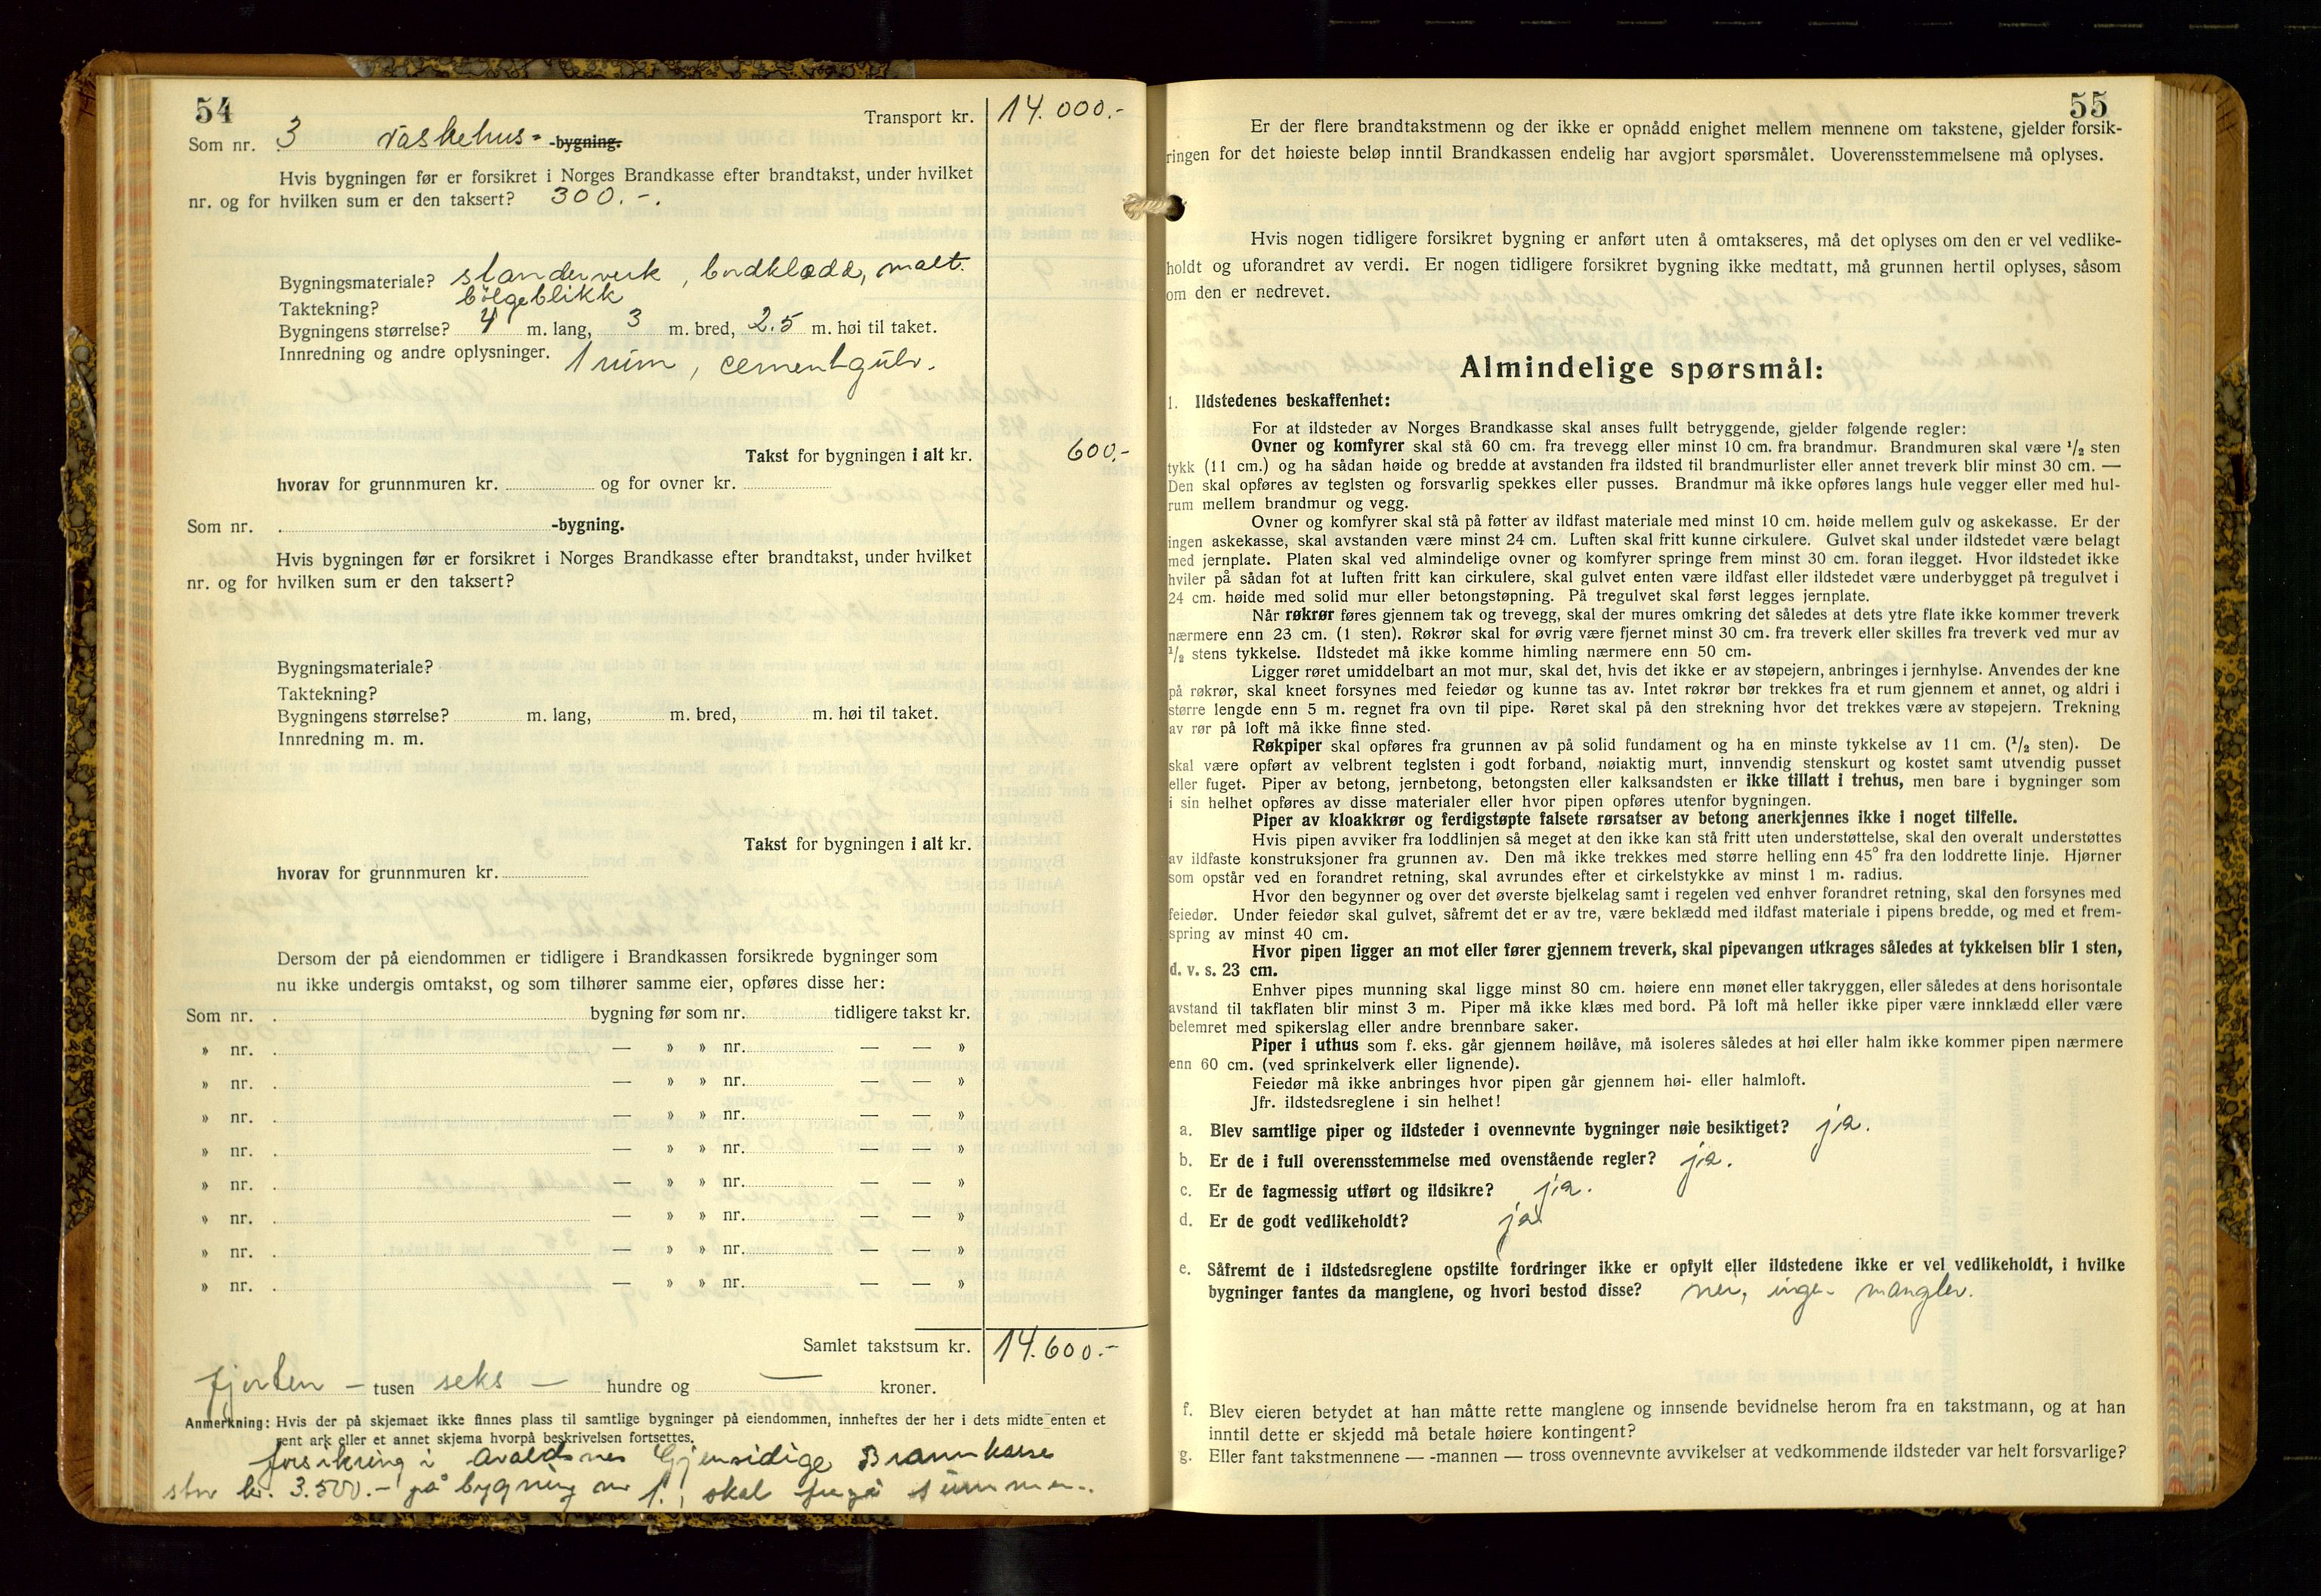 54
Transport kr. 14.000.-
Som nr. 3 Vaskehus- -bygning.
Hvis bygningen før er forsikret i Norges Brandkasse efter brandtakst, under hvilket
nr. og for hvilken sum er den taksert? 300.-.
Bygningsmateriale? standerverk, bordklædd, malt.
Taktekning? bølgeblikk
Bygningens størrelse? 4 m. lang, 3 m. bred, 2.5 m. høi til taket.
Innredning og andre oplysninger. 1 rum, cementgulv.
Takst for bygningen i alt kr. 600.-
hvorav for grunnmuren kr. og for ovner kr.
Som nr. -bygning.
Hvis bygningen før er forsikret i Norges Brandkasse efter brandtakst, under hvilket
nr. og for hvilken sum er den taksert?
Bygningsmateriale?
Taktekning?
Bygningens størrelse? m. lang, m. bred, m. høi til taket.
Innredning m. m.
Takst for bygningen i alt kr.
hvorav for grunnmuren kr.
Dersom der på eiendommen er tidligere i Brandkassen forsikrede bygninger som
nu ikke undergis omtakst, og som tilhører samme eier, opføres disse her:
Som nr. bygning før som nr. tidligere takst kr.
» nr. — » » nr. — — »
» nr. — » » nr. — — »
» nr. — » » nr. — — »
» nr. — » » nr. — — »
» nr. — » » nr. — — »
» nr. — » » nr. — — »
» nr. — » » nr. — — »
» nr. — » » nr. — — »
Samlet takstsum kr. 14.600.-
fjorten — tusen seks — hundre og — kroner.
Anmerkning: Hvis der på skjemaet ikke finnes plass til samtlige bygninger på eiendommen, innheftes der her i dets midte enten et
rent ark eller et annet skjema hvorpå beskrivelsen fortsettes.
forsikring i Avaldsnes Gjensidige Brannkasse
stor kr. 3.500.- på bygning nr 1., skal fragå summen.
55
Er der flere brandtakstmenn og der ikke er opnådd enighet mellem mennene om takstene, gjelder forsik-
ringen for det høieste beløp inntil Brandkassen endelig har avgjort spørsmålet. Uoverensstemmelsene må oplyses.
Hvis nogen tidligere forsikret bygning er anført uten å omtakseres, må det oplyses om den er vel vedlike-
holdt og uforandret av verdi. Er nogen tidligere forsikret bygning ikke medtatt, må grunnen hertil oplyses, såsom
om den er nedrevet.
Almindelige spørsmål:
1. Ildstedenes beskaffenhet:
For at ildsteder av Norges Brandkasse skal anses fullt betryggende, gjelder følgende regler:
Ovner og komfyrer skal stå 60 cm. fra trevegg eller minst 10 cm. fra brandmur. Brandmuren skal være 1/2 sten
tykk (11 cm.) og ha sådan høide og bredde at avstanden fra ildsted til brandmurlister eller annet treverk blir minst 30 cm. —
Den skal opføres av teglsten og forsvarlig spekkes eller pusses. Brandmur må ikke opføres langs hule vegger eller med hul-
rum mellem brandmur og vegg.
Ovner og komfyrer skal stå på føtter av ildfast materiale med minst 10 cm. høide mellem gulv og askekasse. Er der
ingen askekasse, skal avstanden være minst 24 cm. Luften skal fritt kunne cirkulere. Gulvet skal under ildstedet være belagt
med jernplate. Platen skal ved almindelige ovner og komfyrer springe frem minst 30 cm. foran ilegget. Hvor ildstedet ikke
hviler på sådan fot at luften fritt kan cirkulere, skal gulvet enten være ildfast eller ildstedet være underbygget på tregulvet i
24 cm. høide med solid mur eller betongstøpning. På tregulvet skal først legges jernplate.
Når røkrør føres gjennem tak og trevegg, skal der mures omkring det således at dets ytre flate ikke kommer treverk
nærmere enn 23 cm. (1 sten). Røkrør skal for øvrig være fjernet minst 30 cm. fra treverk eller skilles fra treverk ved mur av
1/2 stens tykkelse. Ildstedet må ikke komme himling nærmere enn 50 cm.
Ligger røret umiddelbart an mot mur, skal det, hvis det ikke er av støpejern, anbringes i jernhylse. Anvendes der kne
på røkrør, skal kneet forsynes med feiedør og kunne tas av. Intet røkrør bør trekkes fra et rum gjennem et annet, og aldri i
større lengde enn 5 m. regnet fra ovn til pipe. Røret skal på den strekning hvor det trekkes være av støpejern. Trekning
av rør på loft må ikke finne sted.
Røkpiper skal opføres fra grunnen av på solid fundament og ha en minste tykkelse av 11 cm. (1/2 sten). De
skal være opført av velbrent teglsten i godt forband, nøiaktig murt, innvendig stenskurt og kostet samt utvendig pusset
eller fuget. Piper av betong, jernbetong, betongsten eller kalksandsten er ikke tillatt i trehus, men bare i bygninger som
i sin helhet opføres av disse materialer eller hvor pipen opføres utenfor bygningen.
Piper av kloakkrør og ferdigstøpte falsete rørsatser av betong anerkjennes ikke i noget tilfelle.
Hvis pipen avviker fra loddlinjen så meget at den ikke kan stå fritt uten understøttelse, skal den overalt understøttes
av ildfaste konstruksjoner fra grunnen av. Den må ikke trekkes med større helling enn 45° fra den loddrette linje. Hjørner
som opstår ved en forandret retning, skal avrundes efter et cirkelstykke av minst 1 m. radius.
Hvor den begynner og over det øverste bjelkelag samt i regelen ved enhver forandret retning, skal den forsynes med
feiedør. Under feiedør skal gulvet, såfremt det er av tre, være beklædd med ildfast materiale i pipens bredde, og med et frem-
spring av minst 40 cm.
Hvor pipen ligger an mot eller fører gjennem treverk, skal pipevangen utkrages således at tykkelsen blir 1 sten,
d. v. s. 23 cm.
Enhver pipes munning skal ligge minst 80 cm. høiere enn mønet eller takryggen, eller således at dens horisontale
avstand til takflaten blir minst 3 m. Piper må ikke klæs med bord. På loft må heller ikke piper være innklædd eller være
belemret med spikerslag eller andre brennbare saker.
Piper i uthus som f. eks. går gjennem høilåve, må isoleres således at høi eller halm ikke kommer pipen nærmere
enn 60 cm. (ved sprinkelverk eller lignende).
Feiedør må ikke anbringes hvor pipen går gjennem høi- eller halmloft.
Jfr. ildstedsreglene i sin helhet!
a. Blev samtlige piper og ildsteder i ovennevnte bygninger nøie besiktiget? ja.
b. Er de i full overensstemmelse med ovenstående regler? ja.
c. Er de fagmessig utført og ildsikre? ja.
d. Er de godt vedlikeholdt? ja
e. Såfremt de i ildstedsreglene opstilte fordringer ikke er opfylt eller ildstedene ikke er vel vedlikeholdt, i hvilke
bygninger fantes da manglene, og hvori bestod disse? nei, ingen mangler.
f. Blev eieren betydet at han måtte rette manglene og innsende bevidnelse herom fra en takstmann, og at han
inntil dette er skjedd må betale høiere kontingent?
g. Eller fant takstmennene — -mannen — tross ovennevnte avvikelser at vedkommende ildsteder var helt forsvarlige?